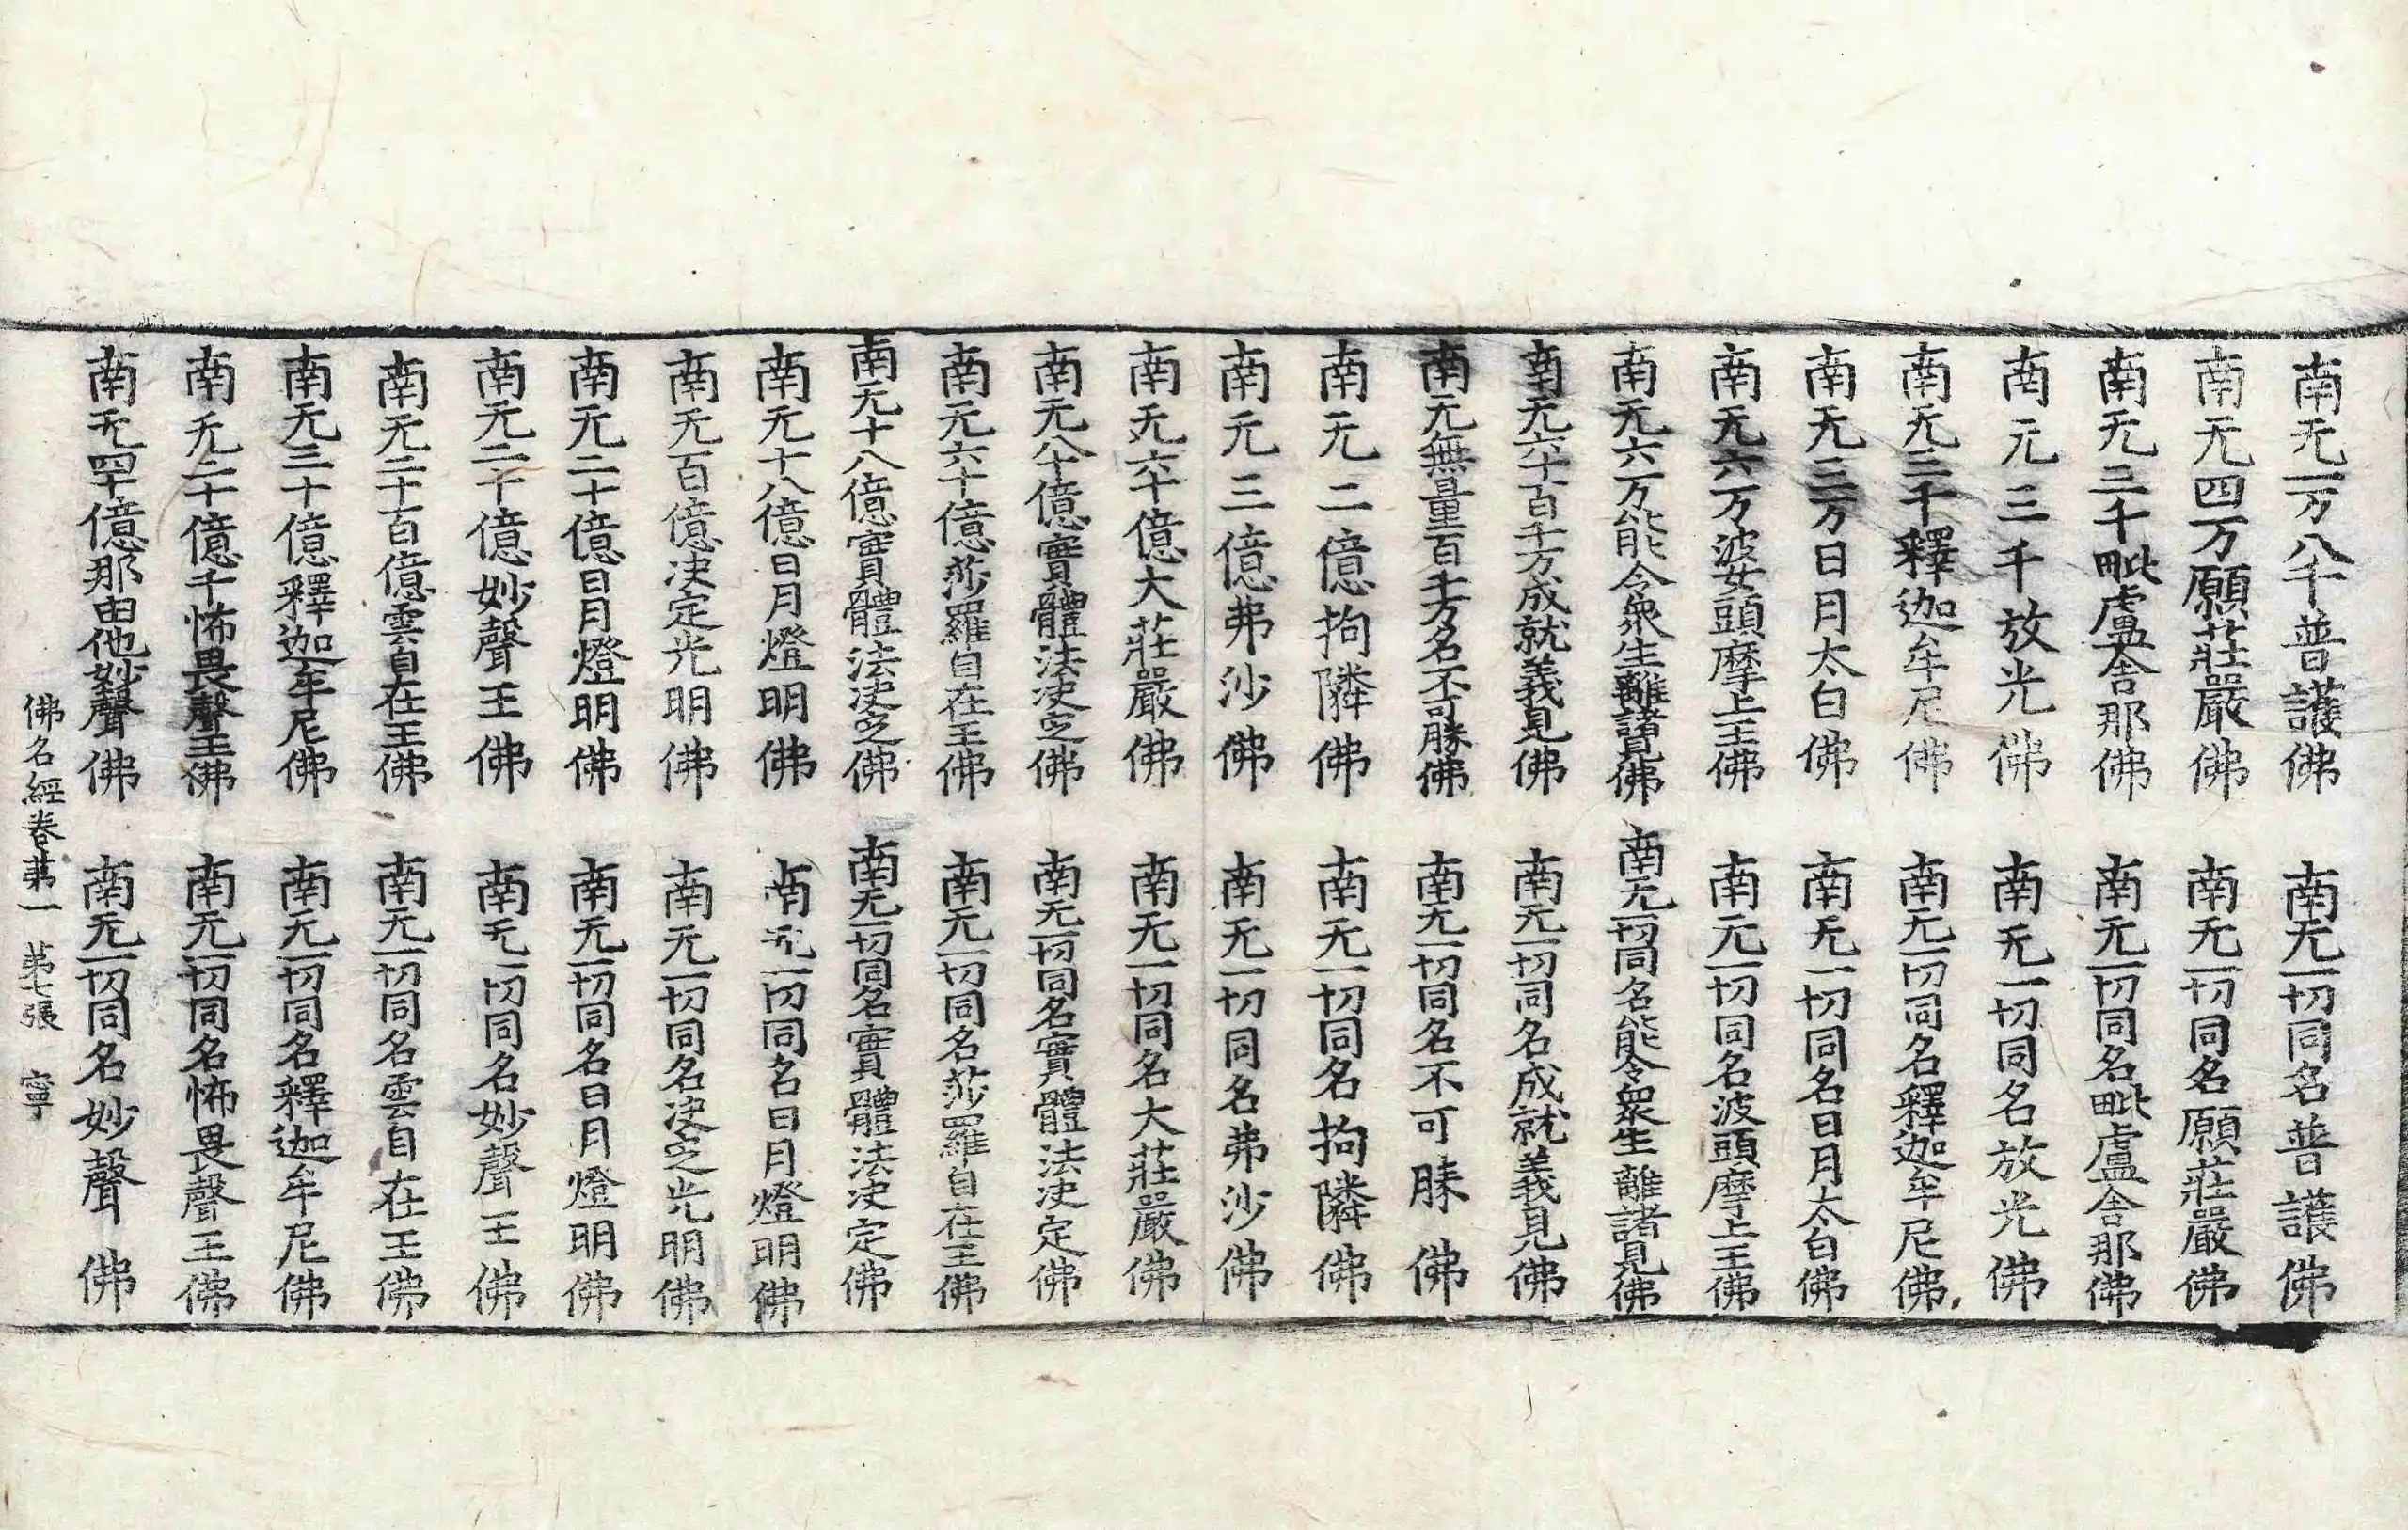 南无一万八千普護佛　南无一切同名普護佛
南无四万願莊嚴佛　南无一切同名願莊嚴佛
南无三千毗盧舍那佛　南无一切同名毗盧舍那佛
南无三千放光佛　南无一切同名放光佛
南无三千釋迦牟尼佛　南无一切同名釋迦牟尼佛
南无三万日月太白佛　南无一切同名日月太白佛
南无六万波女頭摩上王佛　南无一切同名波頭摩上王佛
南无六万能令衆生離諸見佛　南无一切同名能令衆生離諸見佛
南无六十百千万成就義見佛　南无一切同名成就義見佛
南无無量百千万名不可勝佛　南无一切同名不可勝佛
南无二億拘隣佛　南无一切同名拘隣佛
南无三億弗沙佛　南无一切同名弗沙佛
南无六十億大莊嚴佛　南无一切同名大莊嚴佛
南无八十億實體法决定佛　南无一切同名實體法决定佛
南无六十億莎羅自在王佛　南无一切同名莎羅自在王佛
南无十八億實體法决定佛　南无一切同名實體法决定佛
南无十八億日月燈明佛　南无一切同名日月燈明佛
南无百億决定光明佛　南无一切同名决定光明佛
南无二十億日月燈明佛　南无一切同名日月燈明佛
南无二十億妙聲王佛　南无一切同名妙聲王佛
南无二十百億雲自在王佛　南无一切同名雲自在王佛
南无三十億釋迦牟尼佛　南无一切同名釋迦牟尼佛
南无二十億千怖畏聲王佛　南无一切同名怖畏聲王佛
南无四十億那由他妙聲佛　南无一切同名妙聲佛
佛名經卷第一　第七張　寧